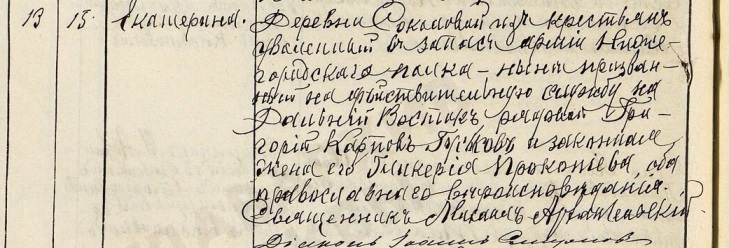 13 15. Екатерина. Деревни Соколовой изъ крестьянъ
уволенный въ запасъ арміи Ниже-
городскаго полка – нынѣ призван-
ный на дѣйствительную службу на
Дальній Востокъ рядовой Гри-
горій Карповъ и законная
жена его Гликерія Прокопіева, оба
православнаго вѣроисповѣданія.
Священникъ Михаилъ Архангельскій
Діаконъ Іоаннъ